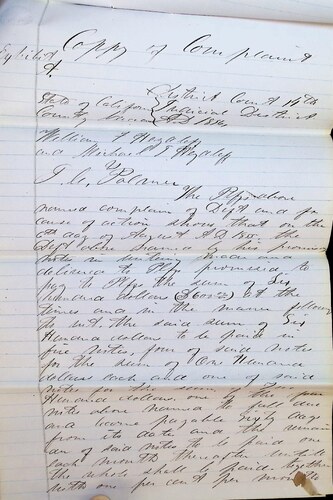 Exhibit Copy of Complaint
A.
State of California District Court 14th
County Judicial District
William
and Michael
J. C. Palmer
The Plffs above
named complain of Deft and for
cause of action show that on the
6th day of August A.D.
Deft
note in writing made and
delivered to Plff promised to
pay to Plff the sum of Six
Hundred dollars ($600.00) at the
times and in the manner following
to wit, the said sum of Six
Hundred dollars to be paid in
five notes, four of said notes
for the sum of One Hundred
dollars each and one of said
notes for the sum of
Hundred dollars, one of the four
notes above named to fall due
and become payable sixty days
from its date and the remain
der of said notes to be paid one
each month thereafter until
the whole shall be paid, together
with one per cent per month